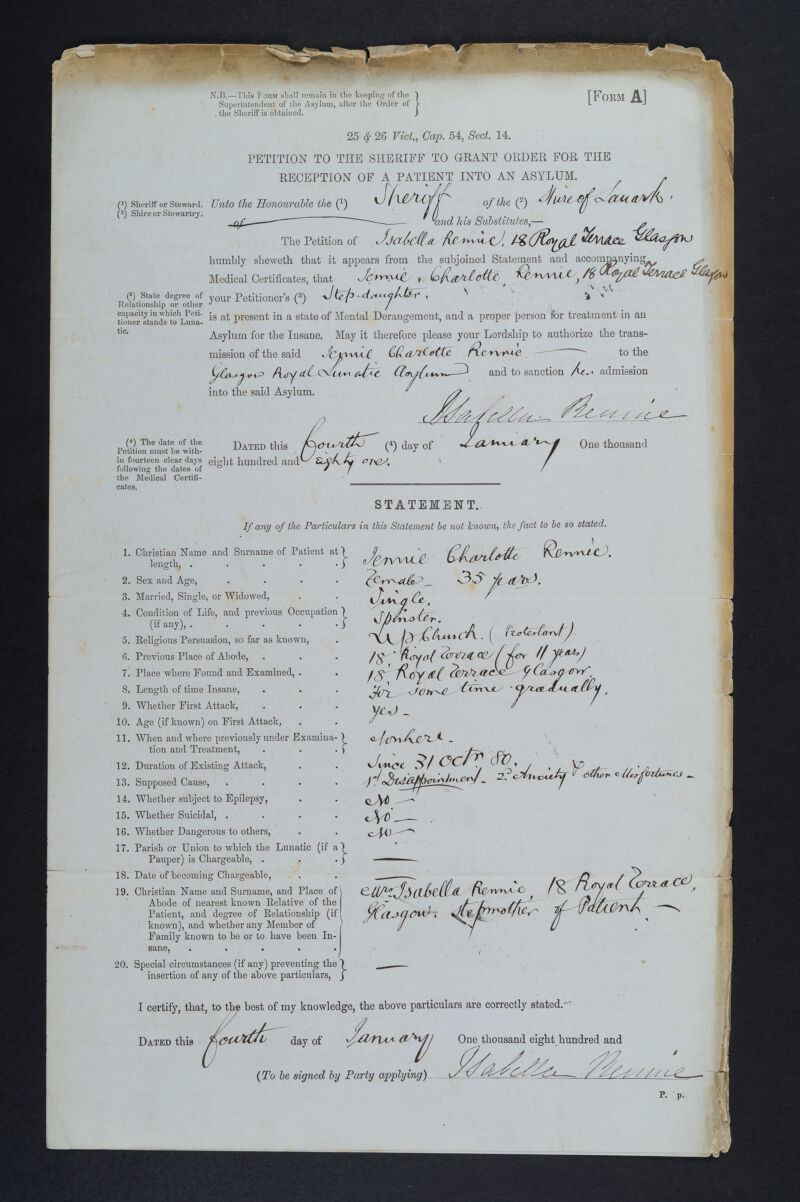 N.B.—This Form shall remain in the keeping of the
Superintendent of the Asylum, after the Order of
the Sheriff is obtained.
[Form A]
25 & 26 Vict., Cap. 54, Sect. 14.
PETITION TO THE SHERIFF TO GRANT ORDER FOR THE
RECEPTION OF A PATIENT INTO AN ASYLUM.
(1) Sheriff or Steward.
(2) Shire or Stewartry.
Unto the Honourable the (1) Sheriff of the (2) Shire of Lanark.
of and his Substitutes,—
The Petition of Isabella Rennie, 18 Royal Terrace Glasgow
humbly sheweth that it appears from the subjoined Statement and accompanying
Medical Certificates, that Jennie Charlotte Rennie, 18 Royal Terrace Glasgow
(3) State degree of
Relationship or other
capacity in which Peti-
tioner stands to Luna-
tic.
your Petitioner's (3) Step-daughter.
is at present in a state of Mental Derangement, and a proper person for treatment in an
Asylum for the Insane. May it therefore please your Lordship to authorize the trans-
mission of the said Jennie Charlotte Rennie to the
Glasgow Royal Lunatic Asylum and to sanction her admission
into the said Asylum.
Isabella Rennie
(4) The date of the
Petition must be with-
in fourteen clear days
following the dates of
the Medical Certifi-
cates.
Dated this Fourth (4) day of January One thousand
eight hundred and eighty one.
STATEMENT.
If any of the Particulars in this Statement be not known, the fact to be so stated.
1. Christian Name and Surname of Patient at
length, . . . . . Jennie Charlotte Rennie.
2. Sex and Age, . . . . Female – 35 years.
3. Married, Single, or Widowed, . . Single.
4. Condition of Life, and previous Occupation
(if any), . . . . . Spinster.
5. Religious Persuasion, so far as known, . U p Church. (Protestant)
6. Previous Place of Abode, . . . 18, Royal Terrace (for 11 years)
7. Place where Found and Examined, . . 18, Royal Terrace Glasgow.
8. Length of time Insane, . . . For some time gradually.
9. Whether First Attack, . . . Yes –
10. Age (if known) on First Attack, . .
11. When and where previously under Examina-
tion and Treatment, . . . Nowhere –
12. Duration of Existing Attack, . . Since 31 Octr 80.
13. Supposed Cause, . . . . 1st Disappointment – 2d Anxiety & other Misfortunes –
14. Whether subject to Epilepsy, . . No —
15. Whether Suicidal, . . . . No —
16. Whether Dangerous to others, . . No —
17. Parish or Union to which the Lunatic (if a
Pauper) is Chargeable, . . . —
18. Date of becoming Chargeable, . . —
19. Christian Name and Surname, and Place of
Abode of nearest known Relative of the
Patient, and degree of Relationship (if
known), and whether any Member of
Family known to be or to have been In-
sane, . . . . . .
Mrs. Isabella Rennie, 18 Royal Terrace,
Glasgow. Stepmother of Patient —
20. Special circumstances (if any) preventing the
insertion of any of the above particulars, —
I certify, that, to the best of my knowledge, the above particulars are correctly stated.
Dated this Fourth day of January One thousand eight hundred and
(To be signed by Party applying) Isabella Rennie
P. p.